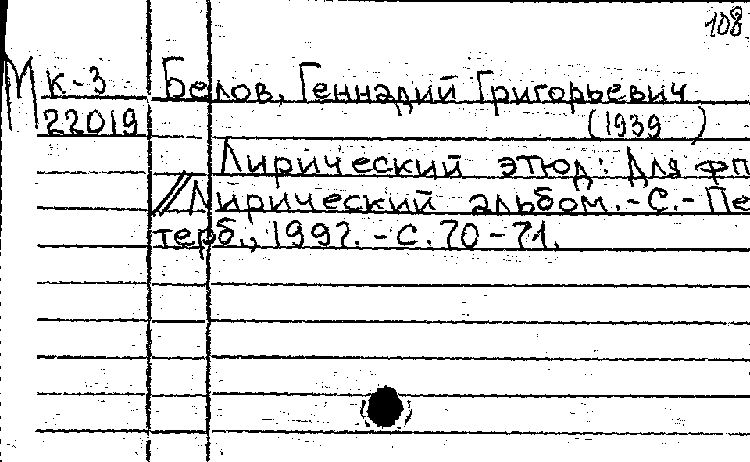 108
М К-3 Белов, Геннадий Григорьевич
22019 (1939 )
Лирический этюд: Для фп
// Лирический альбом.-С.-Пе
терб., 1997.-С.70-71.